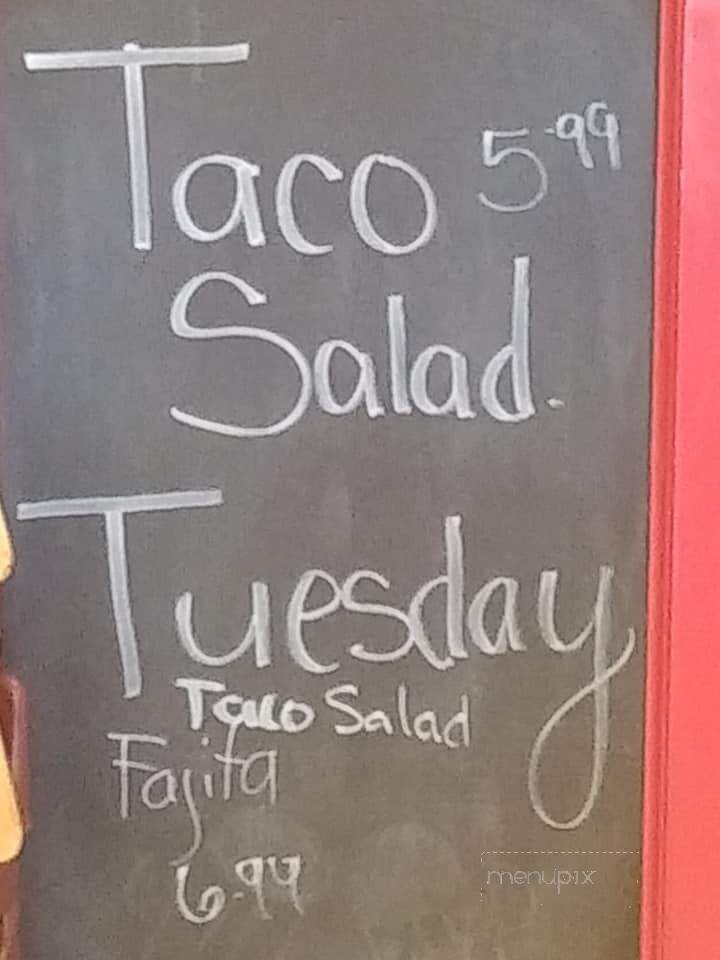 Taco 5.99
Salad.
Tuesday
Taco Salad
Fajita
6.99
menupix